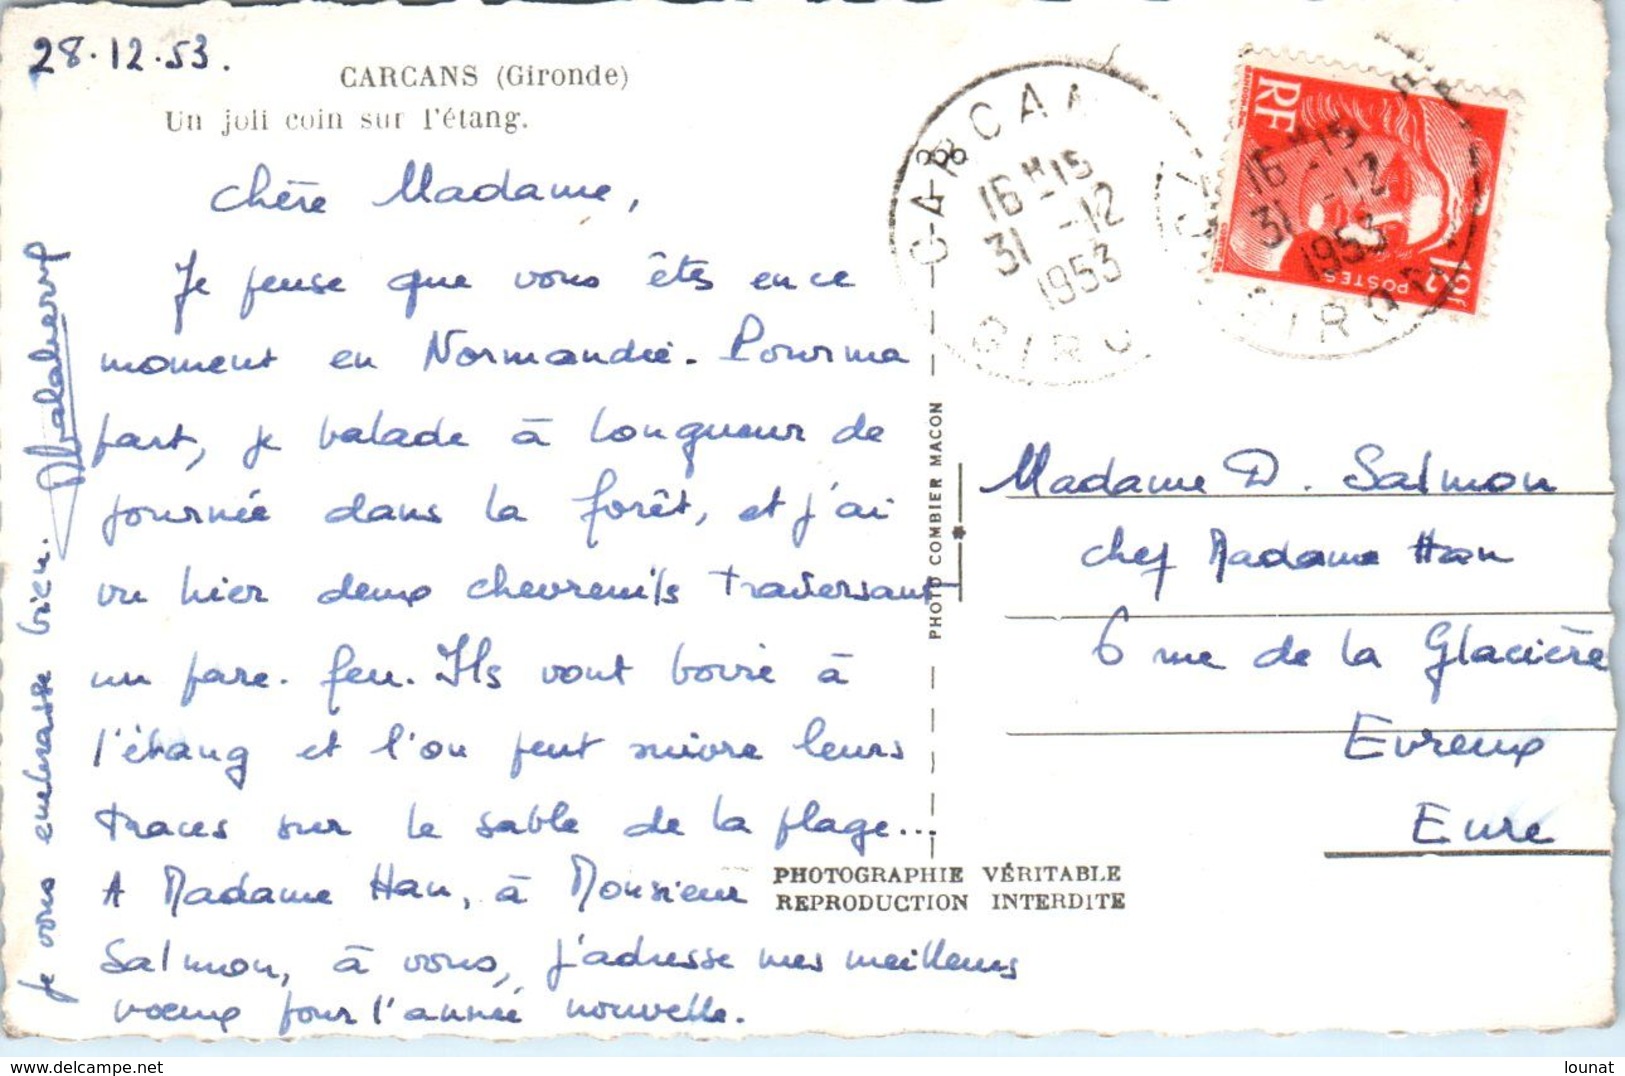 28.12.53.
CARCANS (Gironde)
Un joli coin sur l'étang.
Chère Madame,
Je pense que vous êtes en ce
moment en Normandie. Pour ma
part, je balade à longueur de
journée dans la forêt, et j'ai
vu hier deux chevreuils traversant
un pare-feu. Ils vont boire à
l'étang et l'on peut suivre leurs
traces sur le sable de la plage...
A Madame Han, à Monsieur
Salmon, à vous, j'adresse mes meilleurs
voeux pour l'année nouvelle.
Je vous embrasse bien.
CARCAN
16H15
31-12
1953
GIRO
RF
POSTES
12f
16H-15
31-12
1953
GIRO
PHOTO COMBIER MACON
Madame D. Salmon
chez Madame Han
6 rue de la Glacière
Evreux
Eure
PHOTOGRAPHIE VÉRITABLE
REPRODUCTION INTERDITE
lounat